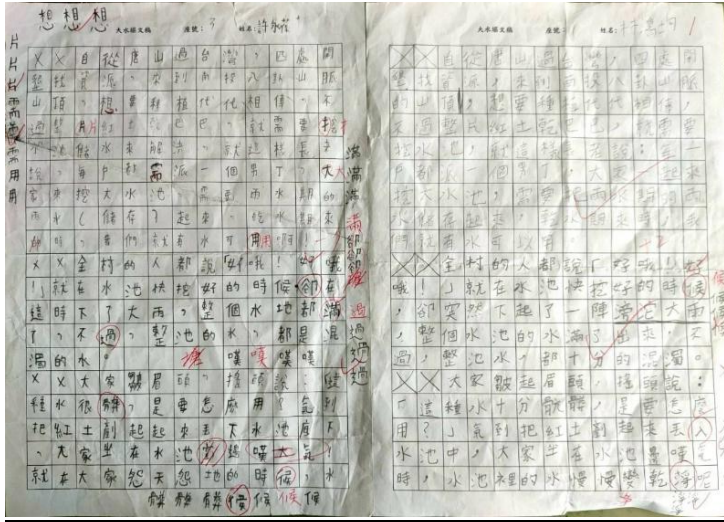 想想想
大水接文稿 座號：3 姓名：許
XX自從唐山過台灣，四處開
墾找資源，來到南投八卦山脈
山頂，想要種植代代相傳，不
過整片紅土乾巴巴，就需要挖
水池儲水來解渴。就這樣長老
說：每戶都需派一個男丁，大
家來挖大水池，需到雨水期的
雨水（儲存了起來，乾水期來
的時，我們就有水可用啊！
XX全村的人都說「好哦！好哦
！」就在水池快挖好的時候，卻在
這時下了大雨，整個水池都滿
了，不過，整池的水，都是混
濁的水。
XX大家皺眉頭，搖頭說：這
種水很髒，是要怎麼用？氣到
把紅土剷起來丟下水池底下
，大家坐在水池旁嘆大氣！
就在大家怨天怨地的時候，水
片
片
片
需
需
用
用
滿
滿
滿
卻
卻
卻
過
過
過
嘆嘆嘆
髒髒髒候候候候
大水接文稿 座號： 姓名：
XX自從唐山過台灣，四處開
墾找資源，來到南投八卦山脈
的山頂，想要種植代代相傳，
不過整片紅土乾巴巴，就需要
挖水池，就這樣長老說：每一
戶都水，需派一男丁，大家一起來
挖大水池，需要把雨水期的雨
水儲存起來，乾水期來時，我
們就有水可以用。
+2
XX全村的人都說「好哦！好
哦！」就在水池快挖好的時候
，卻突然下起了一陣滂沱大雨
，整個水池的水滿了出來，不
過，整池水，都十分的混濁。
XX大家皺起眉頭，搖頭說：
「這種水十分骯髒，是要怎麼
用？」氣到把紅土剷起來丟入
水池中，大家坐在水池旁嘆氣
時，水池裡的水慢慢變乾淨呢